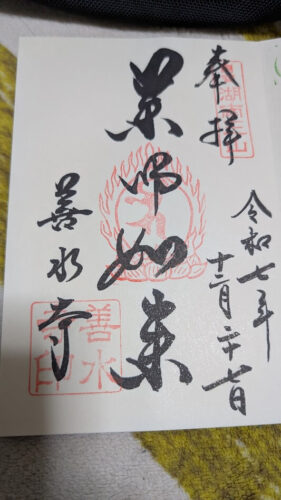 奉拝
湖南三山
令和七年
十二月二十七日
薬師如来
善水寺
善水
寺印